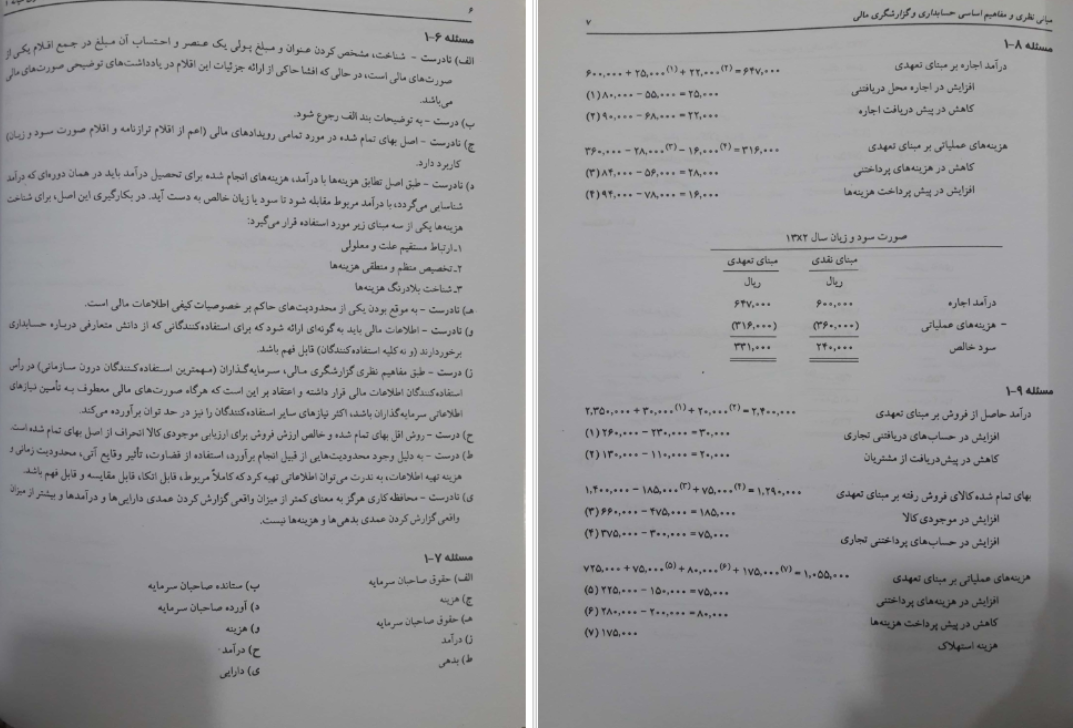 ۶
مسئله ۶-۱
الف) نادرست - شناخت، مشخص کردن عنوان و مبلغ پولی یک عنصر و احتساب آن مبلغ در جمع اقلام یکی از
صورت‌های مالی است، در حالی که افشا حاکی از ارائه جزئیات این اقلام در یادداشت‌های توضیحی صورت‌های مالی
می‌باشد.
ب) درست - به توضیحات بند الف رجوع شود.
ج) نادرست - اصل بهای تمام شده در مورد تمامی رویدادهای مالی (اعم از اقلام ترازنامه و اقلام صورت سود و زیان)
کاربرد دارد.
د) نادرست - طبق اصل تطابق هزینه‌ها با درآمد، هزینه‌های انجام شده برای تحصیل درآمد باید در همان دوره‌ای که درآمد
شناسایی می‌گردد، با درآمد مربوط مقابله شود تا سود یا زیان خالص به دست آید. در بکارگیری این اصل، برای شناخت
هزینه‌ها یکی از سه مبنای زیر مورد استفاده قرار می‌گیرد:
۱ـ ارتباط مستقیم علت و معلولی
۲ـ تخصیص منظم و منطقی هزینه‌ها
۳ـ شناخت بلادرنگ هزینه‌ها
هـ) نادرست - به موقع بودن یکی از محدودیت‌های حاکم بر خصوصیات کیفی اطلاعات مالی است.
و) نادرست - اطلاعات مالی باید به گونه‌ای ارائه شود که برای استفاده‌کنندگانی که از دانش متعارفی درباره حسابداری
برخوردارند (و نه کلیه استفاده‌کنندگان) قابل فهم باشد.
ز) درست - طبق مفاهیم نظری گزارشگری مالی، سرمایه‌گذاران (مهمترین استفاده‌کنندگان درون سازمانی) در رأس
استفاده‌کنندگان اطلاعات مالی قرار داشته و اعتقاد بر این است که هرگاه صورت‌های مالی معطوف به تأمین نیازهای
اطلاعاتی سرمایه‌گذاران باشد، اکثر نیازهای سایر استفاده‌کنندگان را نیز در حد توان برآورده می‌کند.
ح) درست - روش اقل بهای تمام شده و خالص ارزش فروش برای ارزیابی موجودی کالا انحراف از اصل بهای تمام شده است.
ط) درست - به دلیل وجود محدودیت‌هایی از قبیل انجام برآورد، استفاده از قضاوت، تأثیر وقایع آتی، محدودیت زمانی و
هزینه تهیه اطلاعات، به ندرت می‌توان اطلاعاتی تهیه کرد که کاملاً مربوط، قابل اتکاء، قابل مقایسه و قابل فهم باشد.
ی) نادرست - محافظه کاری هرگز به معنای کمتر از میزان واقعی گزارش کردن عمدی دارایی‌ها و درآمدها و بیشتر از میزان
واقعی گزارش کردن عمدی بدهی‌ها و هزینه‌ها نیست.
مسئله ۷-۱
الف) حقوق صاحبان سرمایه ب) ستانده صاحبان سرمایه
ج) هزینه د) آورده صاحبان سرمایه
هـ) حقوق صاحبان سرمایه و) هزینه
ز) درآمد ح) درآمد
ط) بدهی ی) دارایی
مبانی نظری و مفاهیم اساسی حسابداری و گزارشگری مالی ۷
مسئله ۸-۱
درآمد اجاره بر مبنای تعهدی ۶۰۰,۰۰۰ + ۲۵,۰۰۰(۱) + ۲۲,۰۰۰(۲) = ۶۴۷,۰۰۰
افزایش در اجاره محل دریافتنی (۱) ۸۰,۰۰۰ − ۵۵,۰۰۰ = ۲۵,۰۰۰
کاهش در پیش دریافت اجاره (۲) ۹۰,۰۰۰ − ۶۸,۰۰۰ = ۲۲,۰۰۰
هزینه‌های عملیاتی بر مبنای تعهدی ۳۶۰,۰۰۰ − ۲۸,۰۰۰(۳) − ۱۶,۰۰۰(۴) = ۳۱۶,۰۰۰
کاهش در هزینه‌های پرداختنی (۳) ۸۴,۰۰۰ − ۵۶,۰۰۰ = ۲۸,۰۰۰
افزایش در پیش پرداخت هزینه‌ها (۴) ۹۴,۰۰۰ − ۷۸,۰۰۰ = ۱۶,۰۰۰
صورت سود و زیان سال ۱۳X۲
مبنای نقدی مبنای تعهدی
ریال ریال
درآمد اجاره ۶۰۰,۰۰۰ ۶۴۷,۰۰۰
- هزینه‌های عملیاتی (۳۶۰,۰۰۰) (۳۱۶,۰۰۰)
سود خالص ۲۴۰,۰۰۰ ۳۳۱,۰۰۰
مسئله ۹-۱
درآمد حاصل از فروش بر مبنای تعهدی ۲,۳۵۰,۰۰۰ + ۳۰,۰۰۰(۱) + ۲۰,۰۰۰(۲) = ۲,۴۰۰,۰۰۰
افزایش در حساب‌های دریافتنی تجاری (۱) ۲۶۰,۰۰۰ − ۲۳۰,۰۰۰ = ۳۰,۰۰۰
کاهش در پیش‌دریافت از مشتریان (۲) ۱۳۰,۰۰۰ − ۱۱۰,۰۰۰ = ۲۰,۰۰۰
بهای تمام شده کالای فروش رفته بر مبنای تعهدی ۱,۴۰۰,۰۰۰ − ۱۸۵,۰۰۰(۳) + ۷۵,۰۰۰(۴) = ۱,۲۹۰,۰۰۰
افزایش در موجودی کالا (۳) ۶۶۰,۰۰۰ − ۴۷۵,۰۰۰ = ۱۸۵,۰۰۰
افزایش در حساب‌های پرداختنی تجاری (۴) ۳۷۵,۰۰۰ − ۳۰۰,۰۰۰ = ۷۵,۰۰۰
هزینه‌های عملیاتی بر مبنای تعهدی ۷۲۵,۰۰۰ + ۷۵,۰۰۰(۵) + ۸۰,۰۰۰(۶) + ۱۷۵,۰۰۰(۷) = ۱,۰۵۵,۰۰۰
افزایش در هزینه‌های پرداختنی (۵) ۲۲۵,۰۰۰ − ۱۵۰,۰۰۰ = ۷۵,۰۰۰
کاهش در پیش پرداخت هزینه‌ها (۶) ۲۸۰,۰۰۰ − ۲۰۰,۰۰۰ = ۸۰,۰۰۰
هزینه استهلاک (۷) ۱۷۵,۰۰۰